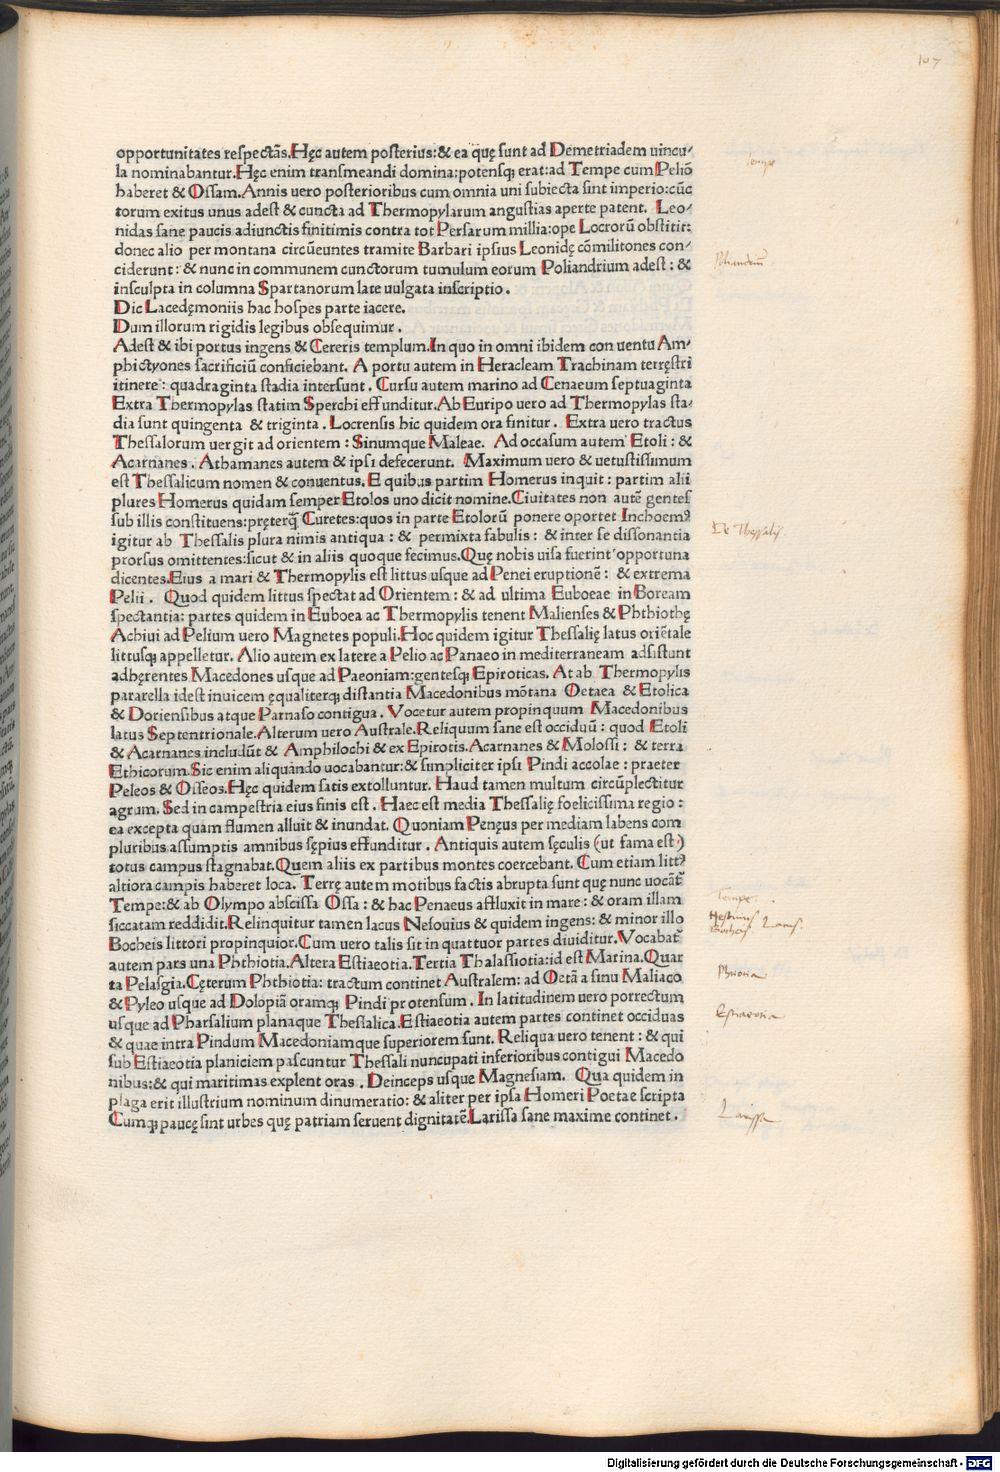 107
opportunitates respectãs.Hęc autem posterius:& ea quę sunt ad Demetriadem uincu⸗
la nominabantur.Hęc enim transmeandi domina:potensqꝫ erat:ad Tempe cum Peliõ
haberet & Ossam.Annis uero posterioribus cum omnia uni subiecta sint imperio:cũc
torum exitus unus adest & cuncta ad Thermopylarum angustias aperte patent. Leo⸗
nidas sane paucis adiunctis finitimis contra tot Persarum millia:ope Locrorũ obstitit:
donec alio per montana circũeuntes tramite Barbari ipsius Leonidę cõmilitones con⸗
ciderunt: & nunc in communem cunctorum tumulum eorum Poliandrium adest: &
insculpta in columna Spartanorum late uulgata inscriptio.
Dic Lacedęmoniis hac hospes parte iacere.
Dum illorum rigidis legibus obsequimur.
Adest & ibi portus ingens & Cereris templum.In quo in omni ibidem conuentu Am⸗
phictyones sacrificiũ conficiebant. A portu autem in Heracleam Trachinam terręstri
itinere: quadraginta stadia intersunt. Cursu autem marino ad Cenaeum septuaginta
Extra Thermopylas statim Sperchi effunditur.Ab Euripo uero ad Thermopylas sta⸗
dia sunt quingenta & triginta. Locrensis hic quidem ora finitur. Extra uero tractus
Thessalorum uergit ad orientem: Sinumque Maleae. Ad occasum autem Etoli: &
Acarnanes. Athamanes autem & ipsi defecerunt. Maximum uero & uetustissimum
est Thessalicum nomen & conuentus.E quibus partim Homerus inquit: partim alii
plures Homerus quidam semper Etolos uno dicit nomine.Ciuitates non autẽ gentes
sub illis constituens:pręterq̃ Curetes:quos in parte Etolorũ ponere oportet Inchoemꝰ
igitur ab Thessalis plura nimis antiqua: & permixta fabulis: & inter se dissonantia
prorsus omittentes:sicut & in aliis quoque fecimus.Quę nobis uisa fuerint opportuna
dicentes.Eius a mari & Thermopylis est littus usque ad Penei eruptionẽ: & extrema
Pelii. Quod quidem littus spectat ad Orientem: & ad ultima Euboeae in Boream
spectantia: partes quidem in Euboea ac Thermopylis tenent Malienses & Phthiothę
Achiui ad Pelium uero Magnetes populi.Hoc quidem igitur Thessalię latus oriẽtale
littusqꝫ appelletur. Alio autem ex latere a Pelio ac Panaeo in mediterraneam adsistunt
adhęrentes Macedones usque ad Paeoniam:gentesqꝫ Epiroticas. At ab Thermopylis
pararella idest inuicem ęqualiterqꝫ distantia Macedonibus mõtana Oetaea & Etolica
& Doriensibus atque Parnaso contigua. Vocetur autem propinquum Macedonibus
latus Septentrionale.Alterum uero Australe.Reliquum sane est occiduũ: quod Etoli
& Acarnanes includũt & Amphilochi & ex Epirotis.Acarnanes & Molossi: & terra
Ethicorum.Sic enim aliquando uocabantur:& simpliciter ipsi Pindi accolae: praeter
Peleos & Osseos.Hęc quidem satis extolluntur. Haud tamen multum circũplectitur
agrum. Sed in campestria eius finis est. Haec est media Thessalię foelicissima regio:
ea excepta quam flumen alluit & inundat. Quoniam Penęus per mediam labens com
pluribus assumptis amnibus sępius effunditur. Antiquis autem sęculis (ut fama est)
totus campus stagnabat.Quem aliis ex partibus montes coercebant. Cum etiam littꝰ
altiora campis haberet loca. Terrę autem motibus factis abrupta sunt quę nunc uocãt᷑
Tempe:& ab Olympo abscissa Ossa: & hac Penaeus affluxit in mare: & oram illam
siccatam reddidit.Relinquitur tamen lacus Nesouius & quidem ingens: & minor illo
Bocheis littori propinquior.Cum uero talis sit in quattuor partes diuiditur.Vocabat᷑
autem pars una Phthiotia.Altera Estiaeotia.Tertia Thalassiotia:id est Marina.Quar
ta Pelasgia.Cęterum Phthiotia: tractum continet Australem: ad Oetã a sinu Maliaco
& Pyleo usque ad Dolopiã oramqꝫ Pindi protensum. In latitudinem uero porrectum
usque ad Pharsalium planaque Thessalica.Estiaeotia autem partes continet occiduas
& quae intra Pindum Macedoniamque superiorem sunt. Reliqua uero tenent: & qui
sub Estiaeotia planiciem pascuntur Thessali nuncupati inferioribus contigui Macedo
nibus:& qui maritimas explent oras. Deinceps usque Magnesiam. Qua quidem in
plaga erit illustrium nominum dinumeratio: & aliter per ipsa Homeri Poetae scripta
Cumqꝫ paucę sint urbes quę patriam seruent dignitatẽ.Larissa sane maxime continet.
Tempe
De Thessalis
Tempe.
Estiaeotia
Larissa
Digitalisierung gefördert durch die Deutsche Forschungsgemeinschaft - DFG